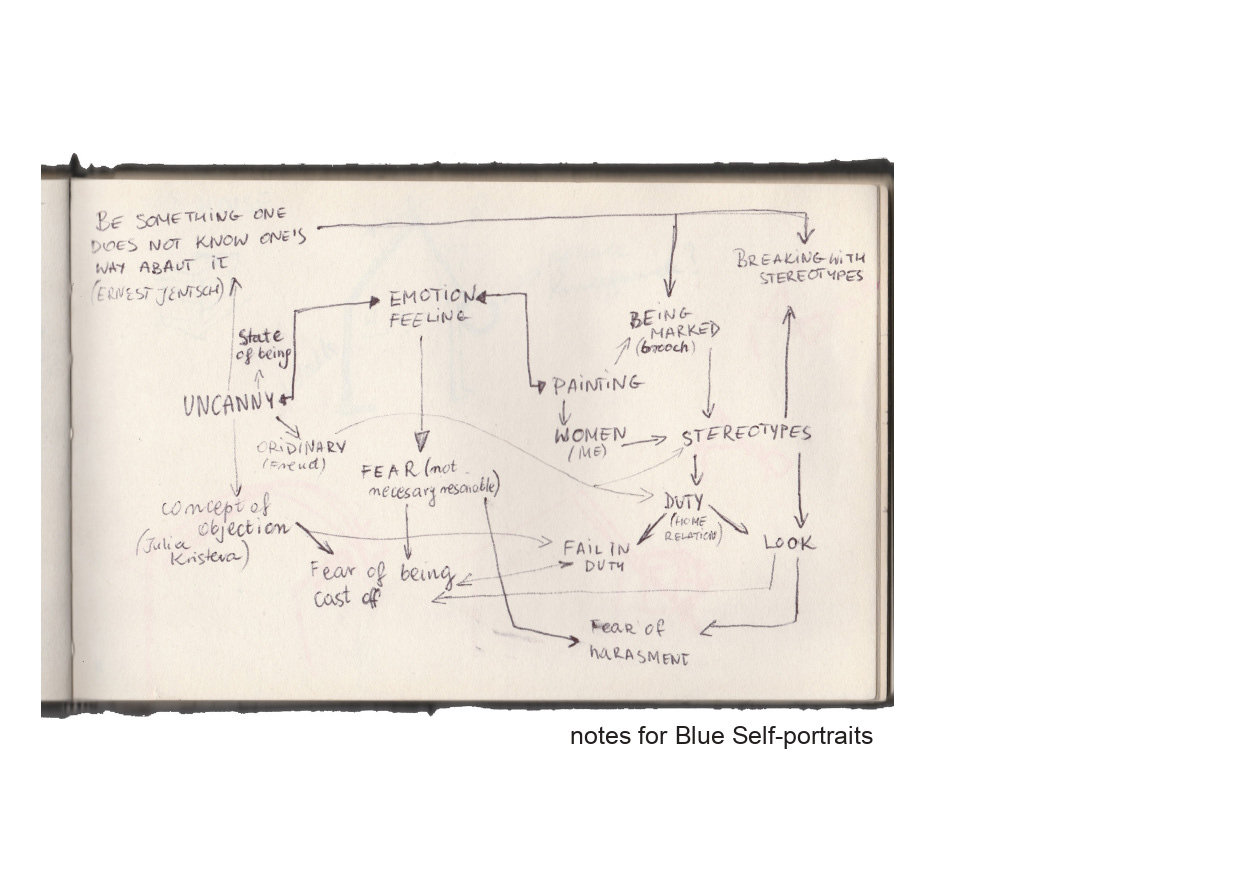 BE SOMETHING ONE
DOES NOT KNOW ONE'S
WAY ABAUT IT
(ERNEST JENTSCH)
BREAKING WITH
STEREOTYPES
EMOTION
FEELING
BEING
MARKED
(brooch)
State
of being
PAINTING
UNCANNY
WOMEN
(ME)
STEREOTYPES
ORIDINARY
(Freud)
FEAR (not
necesary resonable)
concept of
objection
(Julia
Kristeva)
DUTY
(HOME
RELATION)
LOOK
FAIL IN
DUTY
Fear of being
cast off
Fear of
hARASMENT
notes for Blue Self-portraits